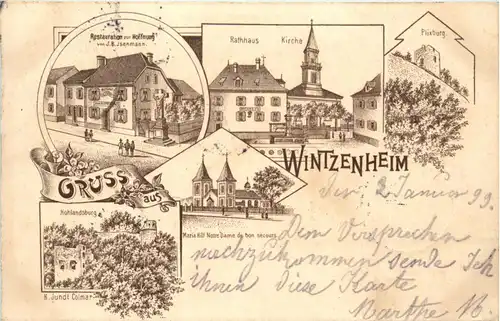 Restauration zur Hoffnung
von J.B. Jsenmann.
Rathhaus Kirche
Plixburg.
WINTZENHEIM
GRUSS aus
Maria Hilf Notre Dame du bon secours.
Hohlandsburg.
H. Jundt Colmar
den 2 Januar 99.
Dem Versprechen
nachzukommen sende Ich
Ihnen diese Karte
Marthe B.